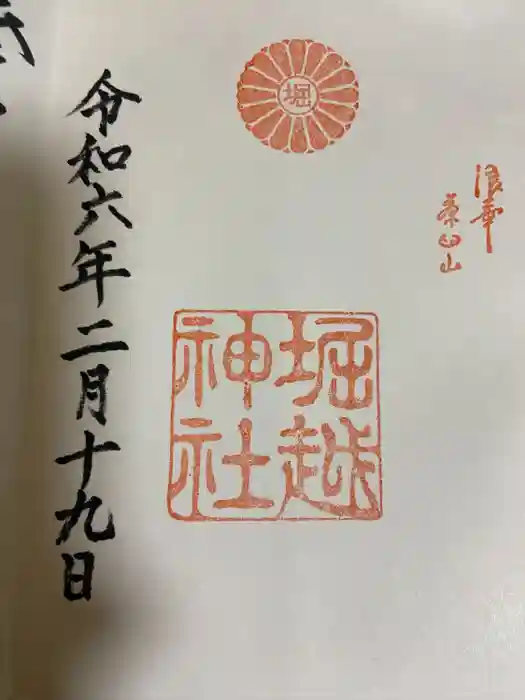 浪華
茶臼山
堀
堀越
神社
令和六年二月十九日